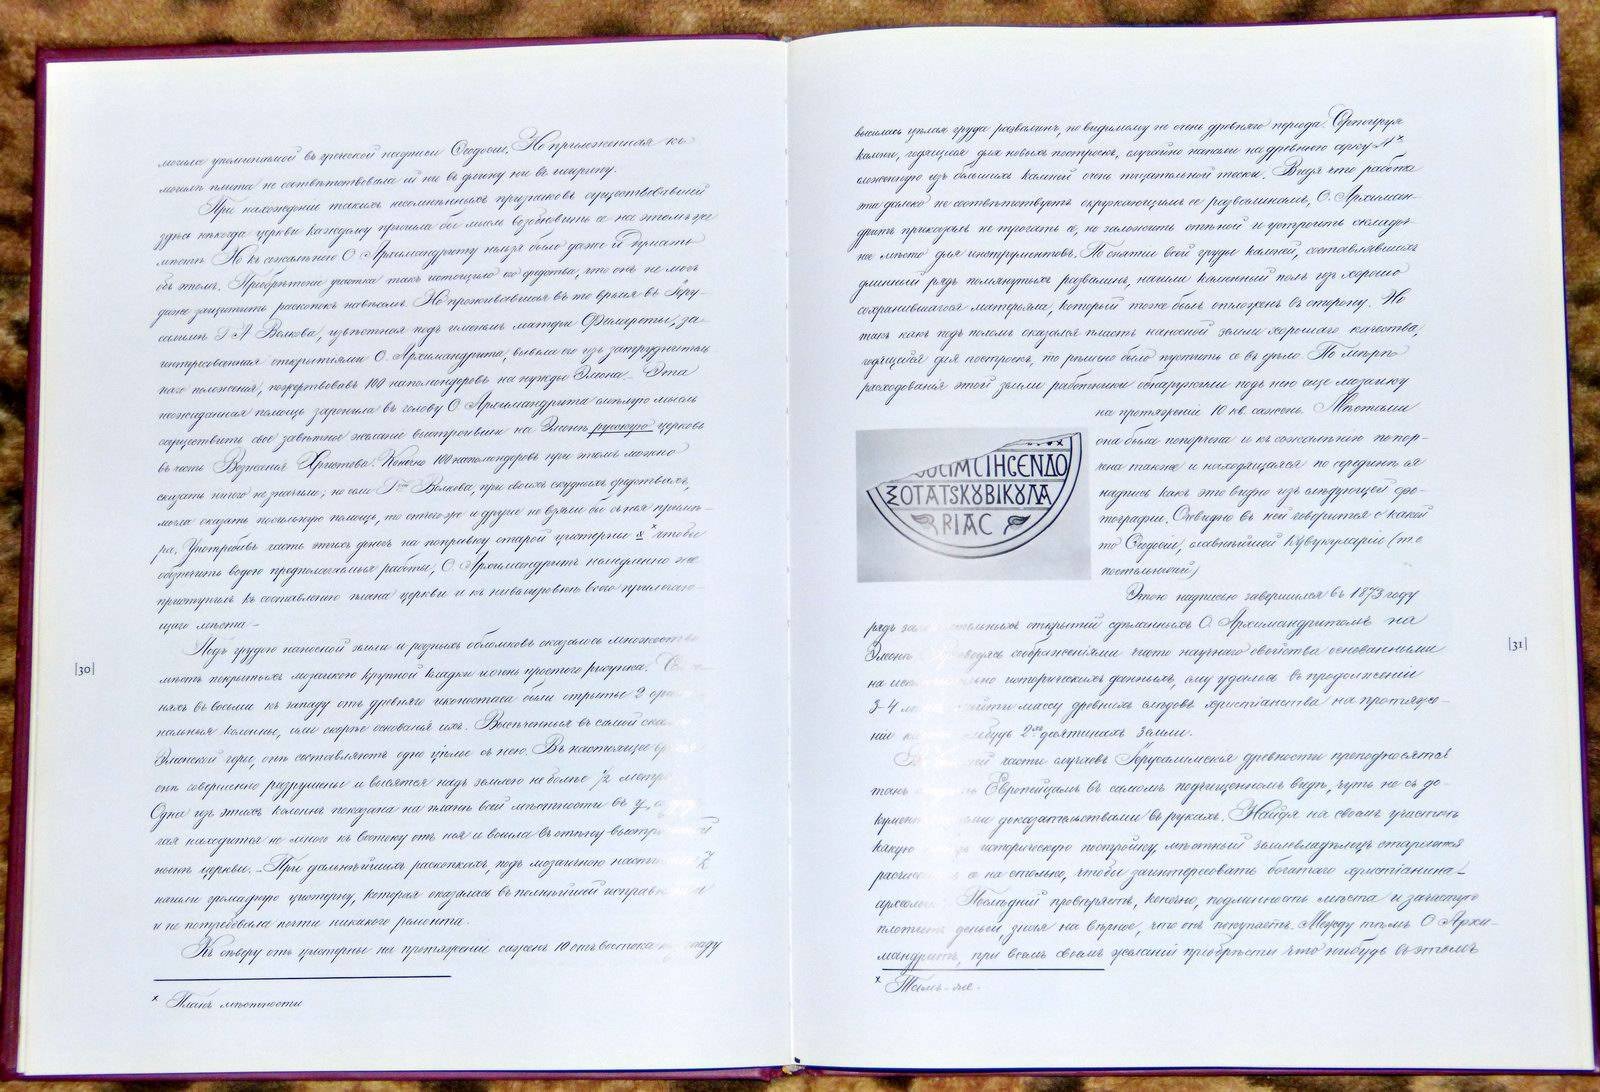 могила упоминаемой въ греческой надписи Ѳеодосіи. Но приложенная къ
могилѣ плита не соотвѣтствовала ей ни въ длину ни въ ширину.
При нахожденіи такихъ несомнѣнныхъ признаковъ существовавшей
здѣсь нѣкогда церкви каждому пришла бы мысль возобновить ее на этомъ же
мѣстѣ. Но къ сожалѣнію О. Архимандриту нельзя было даже и думать
объ этомъ. Пріобрѣтеніе участка такъ истощило его средства, что онъ не могъ
даже защитить раскопокъ навѣсомъ. Но проживавшая въ то время въ Іеру-
салимѣ Г. А. Волкова, извѣстная подъ именемъ матери Филареты, за-
интересованная открытіями О. Архимандрита, вывела его изъ затруднитель-
наго положенія, пожертвовавъ 100 наполеондоровъ на нужды Элеона. Эта
неожиданная помощь заронила въ голову О. Архимандрита смѣлую мысль
осуществить свое завѣтное желаніе выстроивши на Элеонѣ русскую церковь
въ честь Вознесенія Христова. Конечно 100 наполеондоровъ при этомъ можно
сказать ничего не значило, но если Г-жа Волкова, при своихъ скудныхъ средствахъ,
могла оказать посильную помощь, то отчего-же и другіе не взяли бы съ нея примѣ-
ра. Употребивъ часть этихъ денегъ на поправку старой цистерны x чтобы
обезпечить водою предполагаемыя работы, О. Архимандритъ немедленно же
приступилъ къ составленію плана церкви и къ нивелировкѣ всего прилегаю-
щаго мѣста –
Подъ грудою наносной земли и разныхъ обломковъ оказалось множество
мѣстъ покрытыхъ мозаикою крупной кладки и очень простого рисунка.
няхъ въ восьми къ западу отъ древняго иконостаса были открыты 2
нальныя колонны, или скорѣе основанія ихъ. Высѣченныя въ самой
Элеонской горѣ, онѣ составляютъ одно цѣлое съ нею. Въ настоящее время
онѣ совершенно разрушены и высятся надъ землею не болѣе ½
Одна изъ этихъ колоннъ показана на планѣ всей мѣстности въ у,
гая находится не много къ востоку отъ нея и вошла въ стѣну
ноющ церкви. – При дальнѣйшихъ раскопкахъ, подъ мозаичною Z
нашли громадную цистерну, которая оказалась въ полнѣйшей исправности
и не потребовала почти никакого ремонта.
Къ сѣверу отъ цистерны на протяженіи саженъ 10 отъ востока къ западу
x Планъ мѣстности
|30|
высилась цѣлая груда развалинъ, по видимому не очень древняго періода. Сортируя
камни, годящіеся для новыхъ построекъ, случайно напали на древнюю арку A x
сложенную изъ большихъ камней очень тщательной тески. Видя что работа
эта далеко не соотвѣтствуетъ окружающимъ ее развалинамъ, О. Архиман-
дритъ приказалъ не трогать ее, но заложить стѣной и устроить складоч-
ное мѣсто для инструментовъ. По снятіи всей груды камней, составлявшихъ
длинный рядъ помянутыхъ развалинъ, нашли каменный полъ изъ хорошо
сохранившагося матеріала, который тоже былъ отложенъ въ сторону. Но
такъ какъ подъ поломъ оказался пластъ наносной земли хорошаго качества,
годящейся для построекъ, то рѣшено было пустить ее въ дѣло. По мѣрѣ
расходованія этой земли работники обнаружили подъ нею еще мозаику
на протяженіи 10 кв. саженъ. Мѣстами
она была попорчена и къ сожалѣнію попор-
чена также и находящаяся по серединѣ ея
надпись какъ это видно изъ слѣдующей фо-
тографіи. Очевидно въ ней говорится о какой
то Ѳеодосіи, славнѣйшей кувукуларіи (т. е.
постельничей)
ΙΜCΙΗCΕΝΔΟ
ΞΟΤΑΤSΚȢΒΙΚȢΛΑ
ΡΙΑC
Этою надписью завершился въ 1873 году
рядъ открытій сдѣланныхъ О. Архимандритомъ на
Элеонѣ. соображеніями чисто научнаго свойства основанными
на историческихъ данныхъ, ему удалось въ продолженіи
3-4 найти массу древнихъ слѣдовъ христіанства на протяже-
ніи нибудь 2хъ десятинахъ земли.
части случаевъ Іерусалимскія древности преподносятся
Европейцамъ въ самомъ подчищенномъ видѣ, чуть не съ до-
кумент доказательствами въ рукахъ. Найдя на своемъ участкѣ
какую историческую постройку, мѣстный землевладѣлецъ старается
ее на столько, чтобы заинтересовать богатаго христіанина –
археолога. Послѣдній провѣряетъ, конечно, подлинность мѣста и зачастую
платитъ деньги, зная на вѣрное, что онъ покупаетъ. Между тѣмъ О. Архи-
мандритъ, при всемъ своемъ желаніи пріобрѣсти что нибудь въ этомъ
x Тамъ-же.
|31|